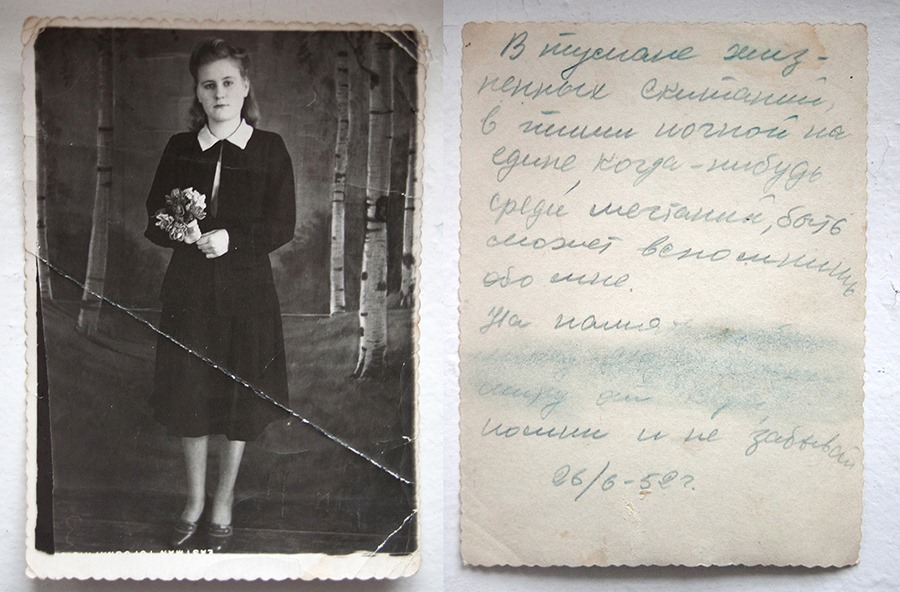 В тумане жиз-
ненных скитаний,
в тиши ночной на
едине когда-нибудь
среди мечтаний, быть
может вспомнишь
обо мне.
На памя
помни и не забывай
26/6-52 г.